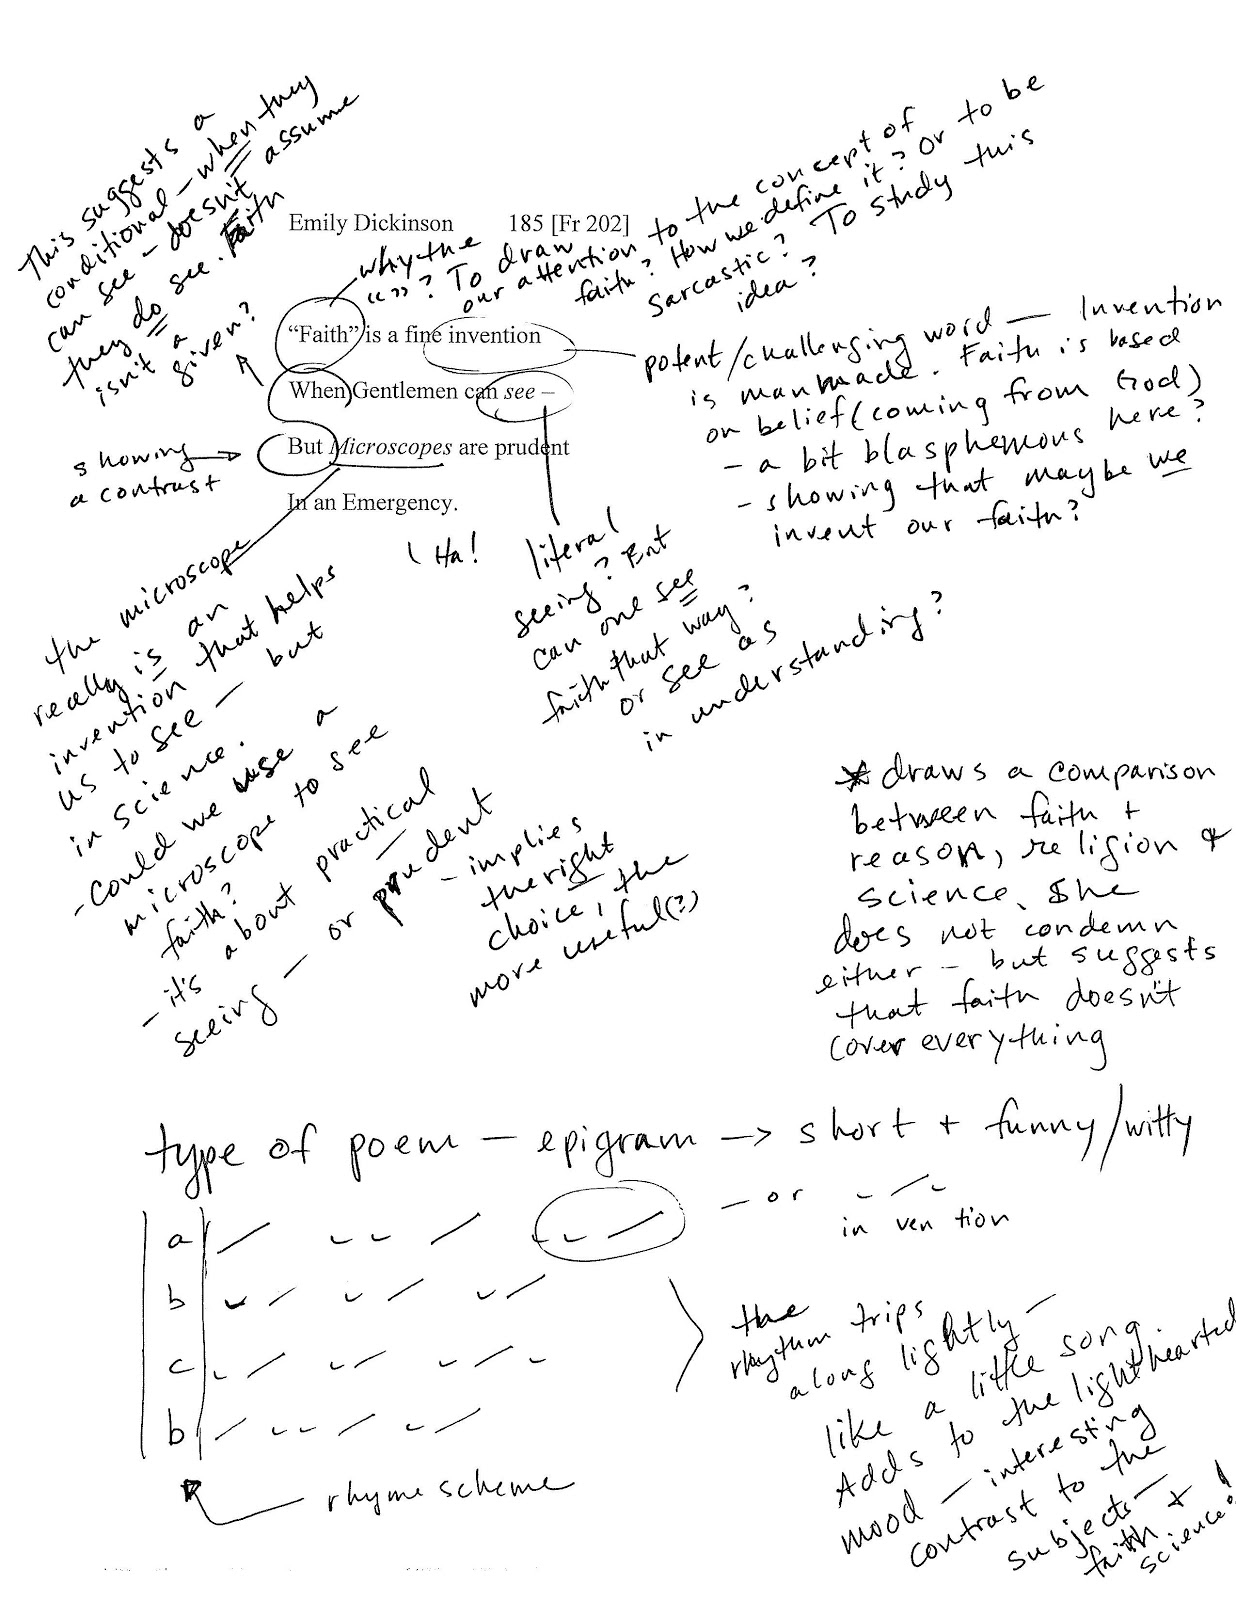 This suggests a
conditional - when they
can see - doesn't assume
they do see. Faith
isn't a
given?
Emily Dickinson 185 [Fr 202]
why the
“ ”? To draw
our attention to the concept of
faith? How we define it? Or to be
sarcastic? To study this
idea?
“Faith” is a fine invention
When Gentlemen can see –
But Microscopes are prudent
In an Emergency.
potent/challenging word — Invention
is manmade. Faith is based
on belief (coming from God)
- a bit blasphemous here?
- showing that maybe we
invent our faith?
showing
a contrast
Ha!
literal
seeing? But
can one see
faith that way?
or see as
in understanding?
the microscope
really is an
invention that helps
us to see — but
in science.
- could we use a
microscope to see
faith?
- it's about practical
seeing — or prudent
- implies
the right
choice, the
more useful(?)
* draws a comparison
between faith +
reason, religion &
science. She
does not condemn
either - but suggests
that faith doesn't
cover everything
type of poem — epigram -> short + funny/witty
— or
in ven tion
a
b
c
b
rhyme scheme
the
rhythm trips
along lightly —
like a little song.
Adds to the lighthearted
mood — interesting
contrast to the
subjects —
faith +
science!